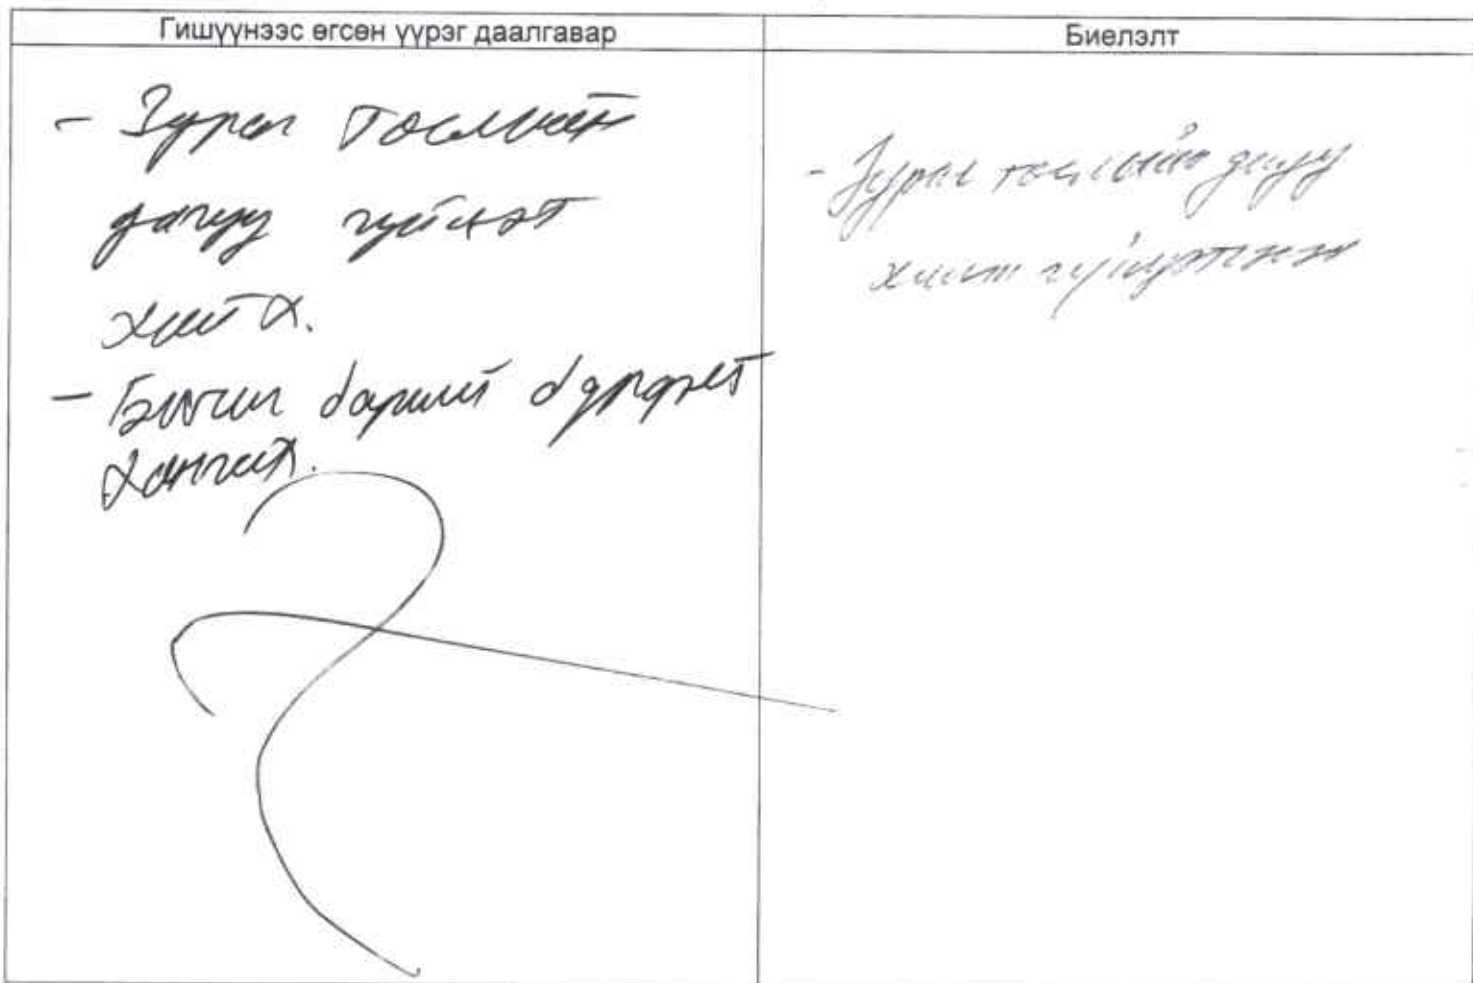 Гишүүнээс өгсөн үүрэг даалгавар
Биелэлт
- Зураг төслийн
дагуу гүйцэт
хийх.
- Бичиг баримт бүрдэлт
хангах.
- Зураг төслийн дагуу
хийж гүйцэтгэсэн